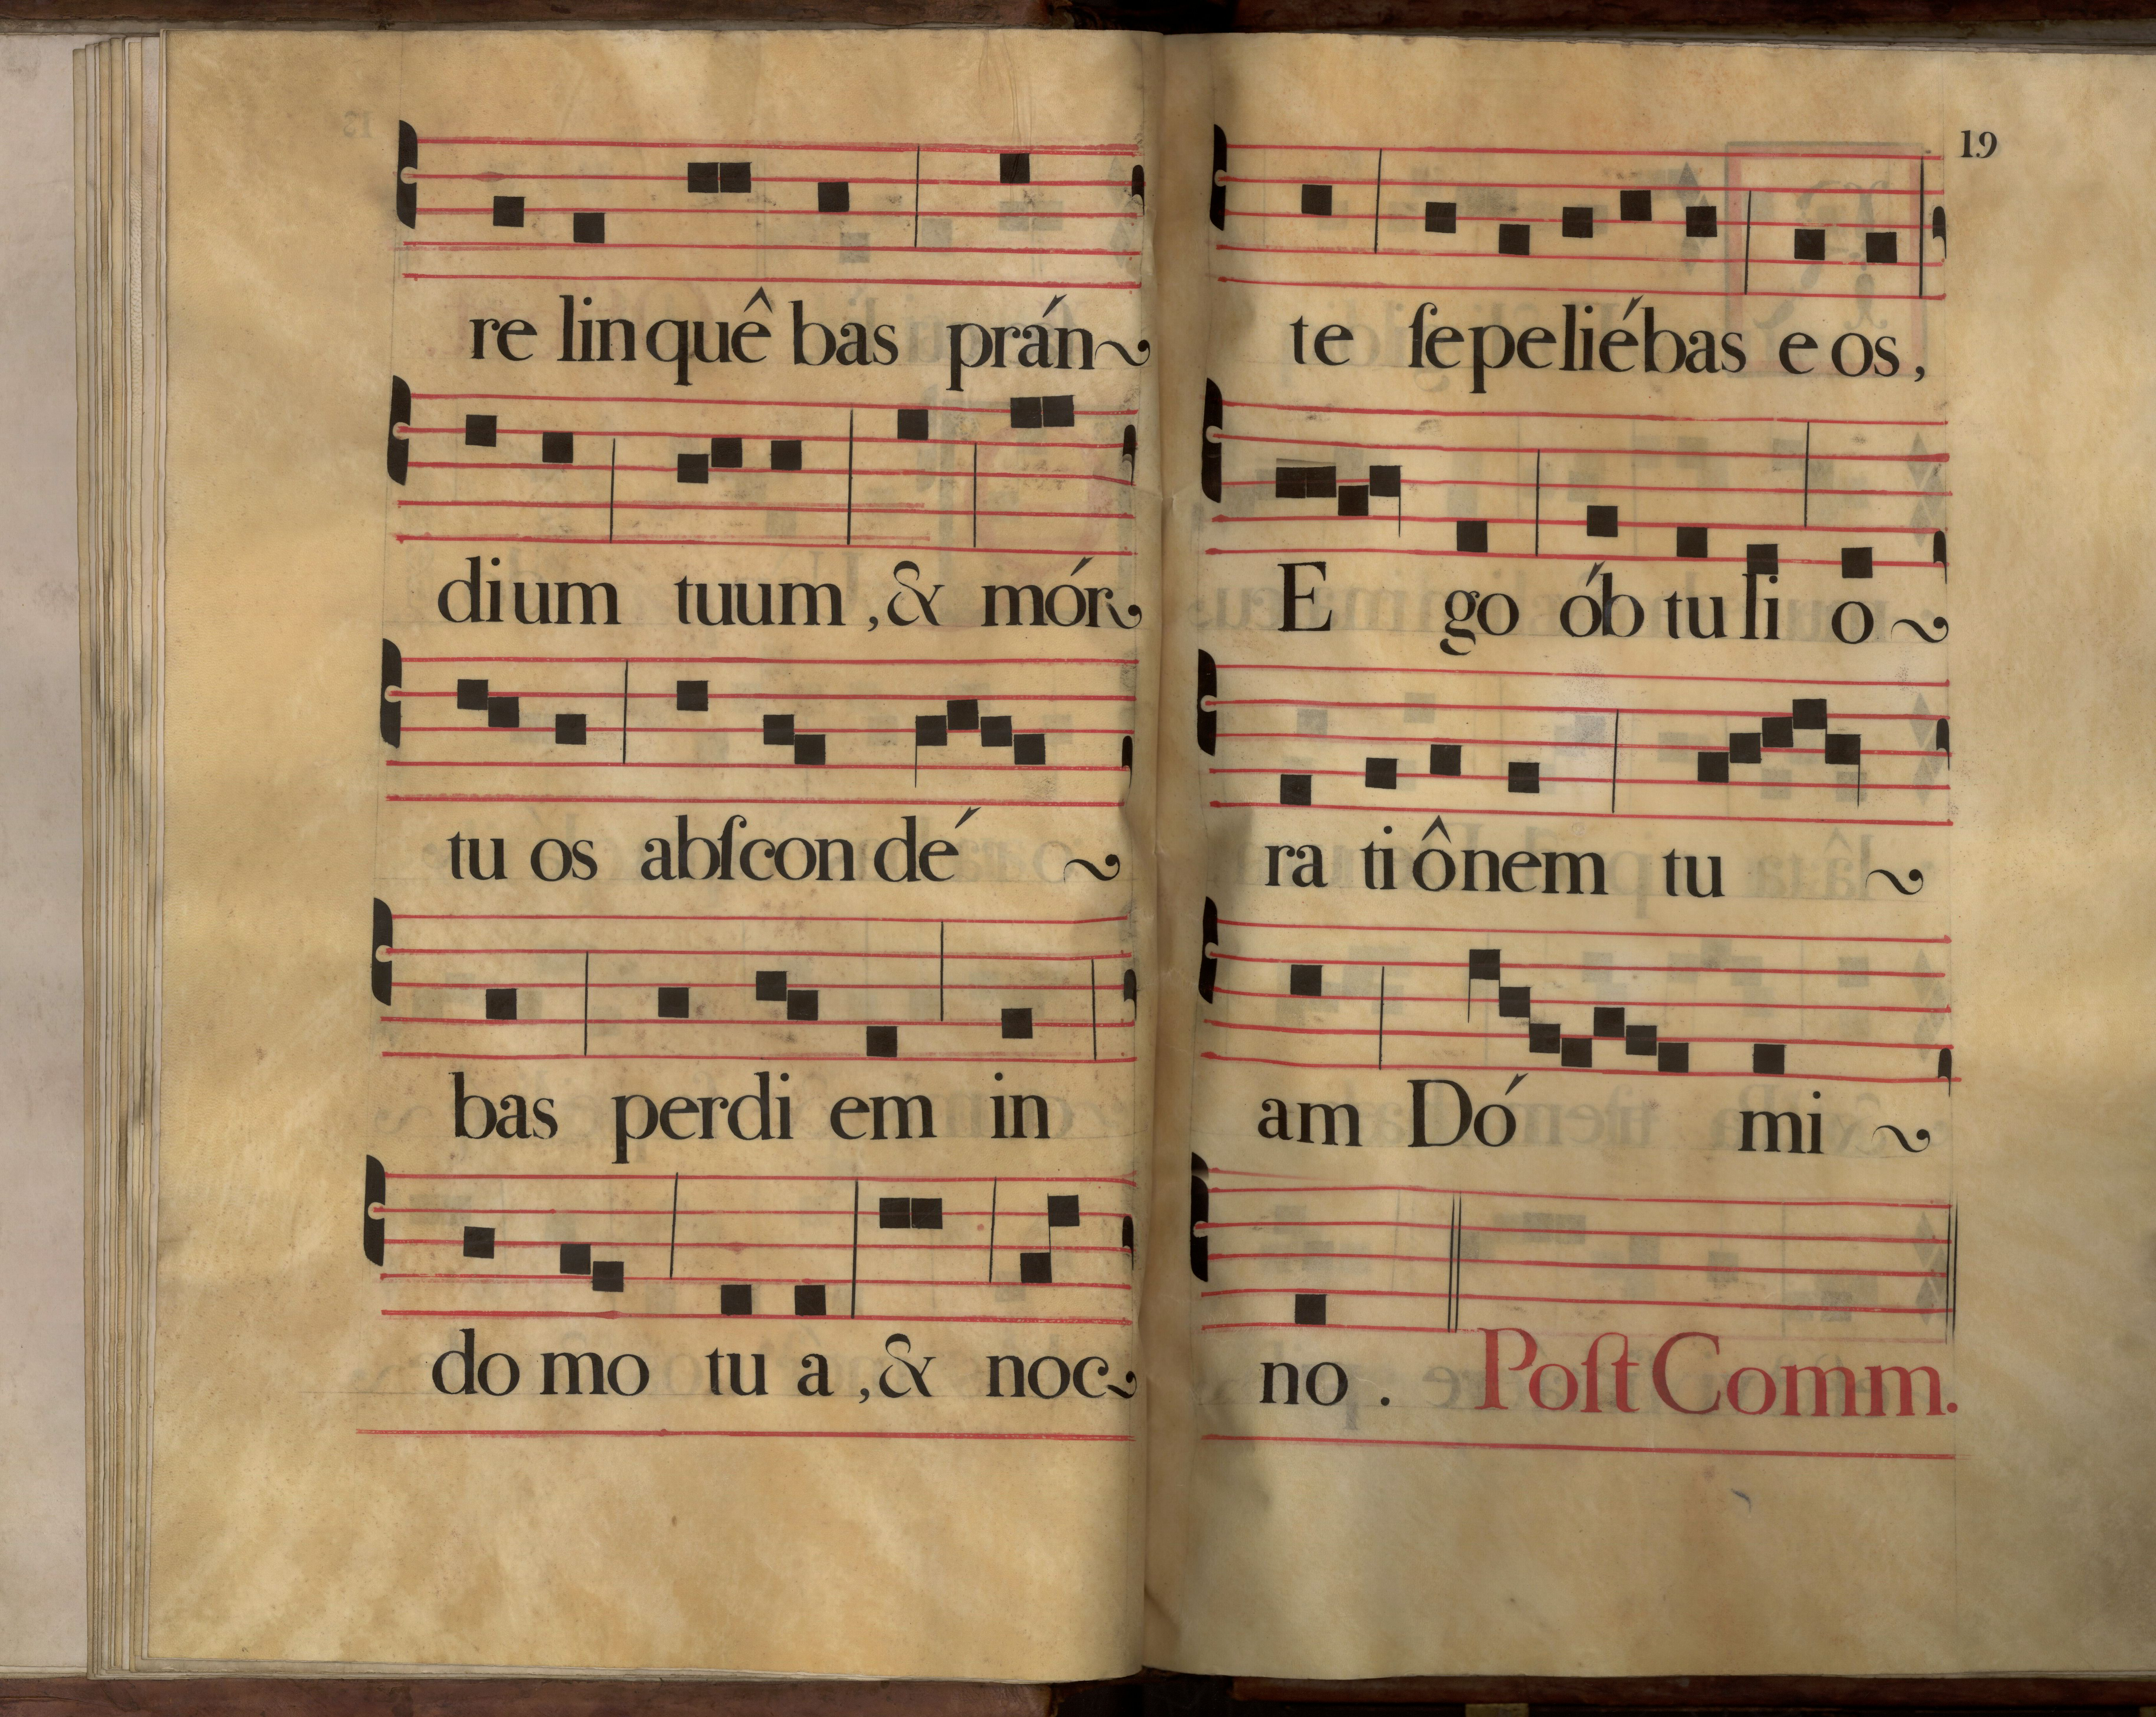 re lin quê bas prán~
dium tuum, & mór~
tu os abſcon dé ~
bas perdi em in
do mo tu a, & noc~
19
te ſepeliébas e os,
E go ób tu li o~
ra ti ônem tu ~
am Dó mi ~
no. Poſt Comm.